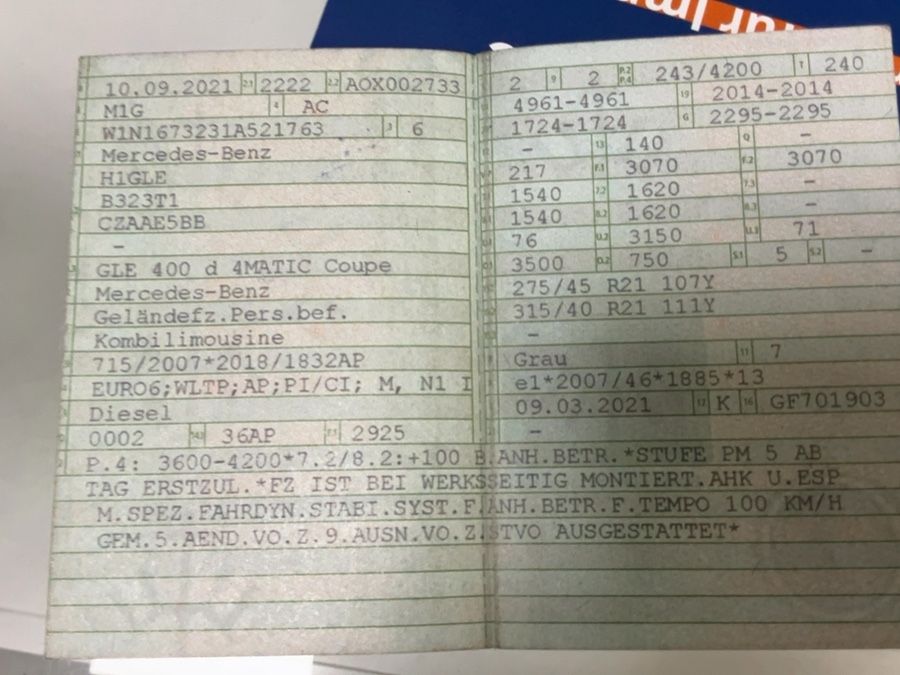 10.09.2021 2.1 2222 2.2 AOX002733
M1G 4 AC
W1N1673231A521763 3 6
Mercedes-Benz
H1GLE
B323T1
CZAAE5BB
–
GLE 400 d 4MATIC Coupe
Mercedes-Benz
Geländefz.Pers.bef.
Kombilimousine
715/2007*2018/1832AP
EURO6;WLTP;AP;PI/CI; M, N1 I
Diesel
0002 14.1 36AP P.1 2925
2 9 2 P.2 P.4 243/4200 T 240
4961-4961 19 2014-2014
1724-1724 G 2295-2295
– 13 140 Q –
217 F.1 3070 F.2 3070
1540 7.2 1620 7.3 –
1540 8.2 1620 8.3 –
76 U.2 3150 U.3 71
3500 O.2 750 S.1 5 S.2 –
275/45 R21 107Y
315/40 R21 111Y
–
Grau 11 7
e1*2007/46*1885*13
09.03.2021 17 K 16 GF701903
–
P.4: 3600-4200*7.2/8.2:+100 B.ANH.BETR.*STUFE PM 5 AB
TAG ERSTZUL.*FZ IST BEI WERKSSEITIG MONTIERT.AHK U.ESP
M.SPEZ.FAHRDYN.STABI.SYST.F.ANH.BETR.F.TEMPO 100 KM/H
GEM.5.AEND.VO.Z.9.AUSN.VO.Z.STVO AUSGESTATTET*